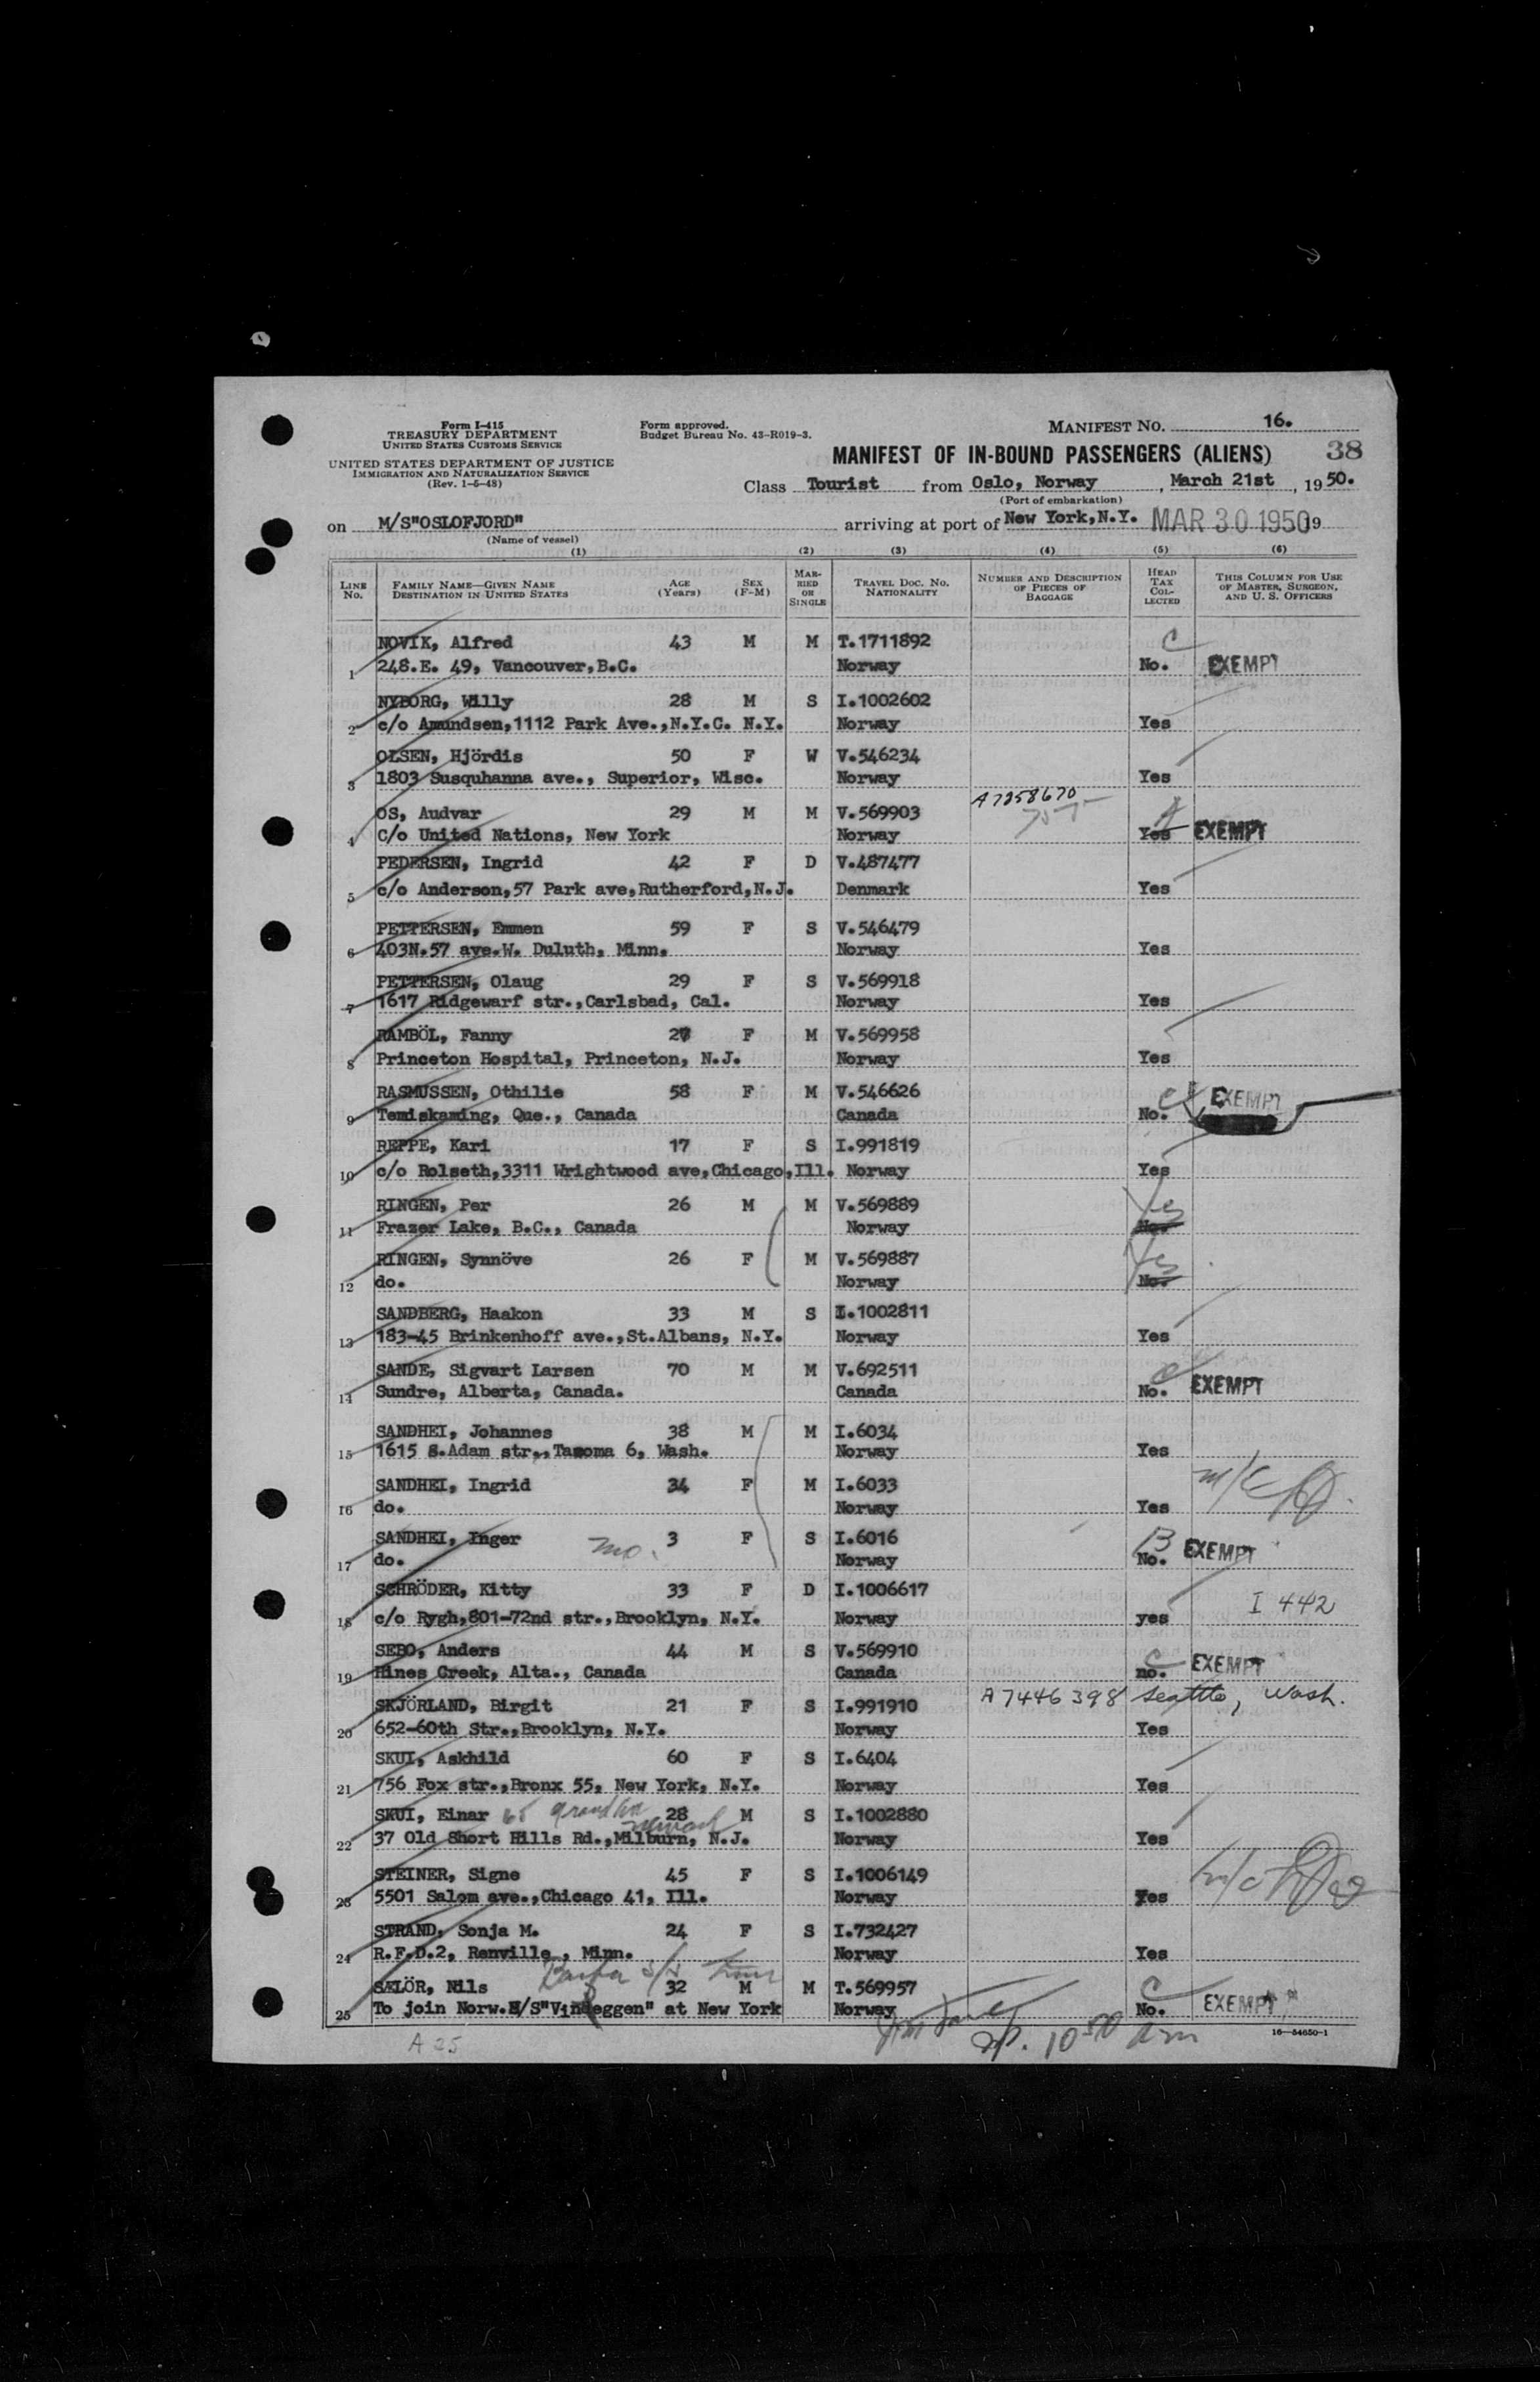 Form I-415
TREASURY DEPARTMENT
UNITED STATES CUSTOMS SERVICE
UNITED STATES DEPARTMENT OF JUSTICE
IMMIGRATION AND NATURALIZATION SERVICE
(Rev. 1-5-48)
Form approved.
Budget Bureau No. 43-R019-3.
MANIFEST NO. 16.
MANIFEST OF IN-BOUND PASSENGERS (ALIENS) 38
Class Tourist from Oslo, Norway, March 21st, 1950.
(Port of embarkation)
on M/S"OSLOFJORD" arriving at port of New York, N.Y. MAR 30 1950 19
(Name of vessel)
(1) (2) (3) (4) (5) (6)
LINE No. FAMILY NAME—GIVEN NAME DESTINATION IN UNITED STATES AGE (Years) SEX (F-M) MARRIED OR SINGLE TRAVEL DOC. NO. NATIONALITY NUMBER AND DESCRIPTION OF PIECES OF BAGGAGE HEAD TAX COLLECTED THIS COLUMN FOR USE OF MASTER, SURGEON, AND U. S. OFFICERS
NOVIK, Alfred 43 M M T.1711892 C
1 248.E. 49, Vancouver, B.C. Norway No. EXEMPT
NYBORG, Willy 28 M S I.1002602
2 c/o Amundsen, 1112 Park Ave., N.Y.C. N.Y. Norway Yes
OLSEN, Hjördis 50 F W V.546234
3 1803 Susquhanna ave., Superior, Wisc. Norway Yes
A7358670
OS, Audvar 29 M M V.569903
4 C/o United Nations, New York Norway Yes EXEMPT
PEDERSEN, Ingrid 42 F D V.487477
5 c/o Anderson, 57 Park ave, Rutherford, N.J. Denmark Yes
PETTERSEN, Emmen 59 F S V.546479
6 403N.57 ave.W. Duluth, Minn. Norway Yes
PETTERSEN, Olaug 29 F S V.569918
7 1617 Ridgewarf str., Carlsbad, Cal. Norway Yes
RAMBÖL, Fanny 27 F M V.569958
8 Princeton Hospital, Princeton, N.J. Norway Yes
RASMUSSEN, Othilie 58 F M V.546626 C EXEMPT
9 Temiskaming, Que., Canada Canada No.
REPPE, Kari 17 F S I.991819
10 c/o Rolseth, 3311 Wrightwood ave, Chicago, Ill. Norway Yes
RINGEN, Per 26 M M V.569889 Yes
11 Frazer Lake, B.C., Canada Norway No.
RINGEN, Synnöve 26 F M V.569887 Yes
12 do. Norway No.
SANDBERG, Haakon 33 M S I.1002811
13 183-45 Brinkenhoff ave., St.Albans, N.Y. Norway Yes
SANDE, Sigvart Larsen 70 M M V.692511 C
14 Sundre, Alberta, Canada. Canada No. EXEMPT
SANDHEI, Johannes 38 M M I.6034
15 1615 S.Adam str., Tacoma 6, Wash. Norway Yes
SANDHEI, Ingrid 34 F M I.6033
16 do. Norway Yes
SANDHEI, Inger mo. 3 F S I.6016 B
17 do. Norway No. EXEMPT
SCHRÖDER, Kitty 33 F D I.1006617
18 c/o Rygh, 801-72nd str., Brooklyn, N.Y. Norway yes I 442
SEBO, Anders 44 M S V.569910 C
19 Hines Creek, Alta., Canada Canada no. EXEMPT
SKJÖRLAND, Birgit 21 F S I.991910 A7446398 Seattle, Wash.
20 652-60th Str., Brooklyn, N.Y. Norway Yes
SKUI, Askhild 60 F S I.6404
21 756 Fox str., Bronx 55, New York, N.Y. Norway Yes
SKUI, Einar 28 M S I.1002880
22 37 Old Short Hills Rd., Milburn, N.J. Norway Yes
STEINER, Signe 45 F S I.1006149
23 5501 Salom ave., Chicago 41, Ill. Norway Yes
STRAND, Sonja M. 24 F S I.732427
24 R.F.D.2, Renville, Minn. Norway Yes
SÆLÖR, Nils 32 M M T.569957 C
25 To join Norw.M/S"Vindeggen" at New York Norway No. EXEMPT
A 25
16—54650-1